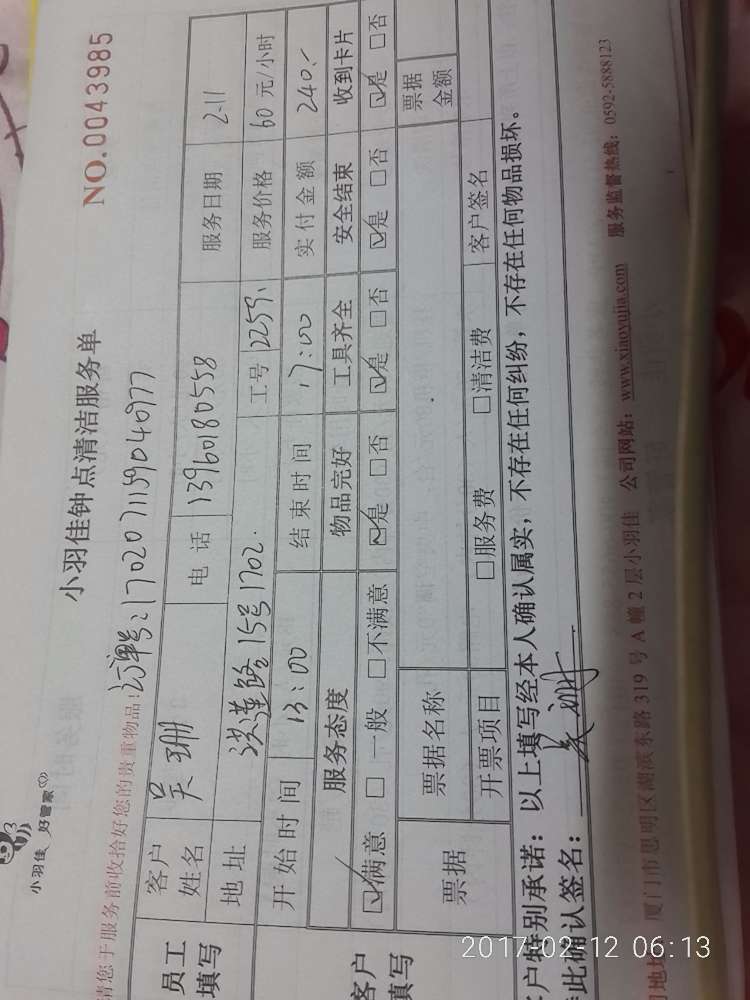 小羽佳 好管家
小羽佳钟点清洁服务单
NO.0043985
请您于服务前收拾好您的贵重物品!
订单号:1702071159040977
员工填写
客户姓名 吴珊 电话 13960180558 服务日期 2.11
地址 洪莲路15号1702. 工号 2259. 服务价格 60元/小时
开始时间 13:00 结束时间 17:00 实付金额 240.-
客户填写
服务态度 物品完好 工具齐全 安全结束 收到卡片
☑满意 □一般 □不满意 ☑是 □否 ☑是 □否 ☑是 □否 ☑是 □否
票据 票据名称 票据金额
开票项目 □服务费 □清洁费 客户签名
客户特别承诺:以上填写经本人确认属实,不存在任何纠纷,不存在任何物品损坏。
此确认签名:吴珊
地址:厦门市思明区湖滨东路319号A幢2层小羽佳 公司网站:www.xiaoyujia.com 服务监督热线:0592-5888123
2017-02-12 06:13